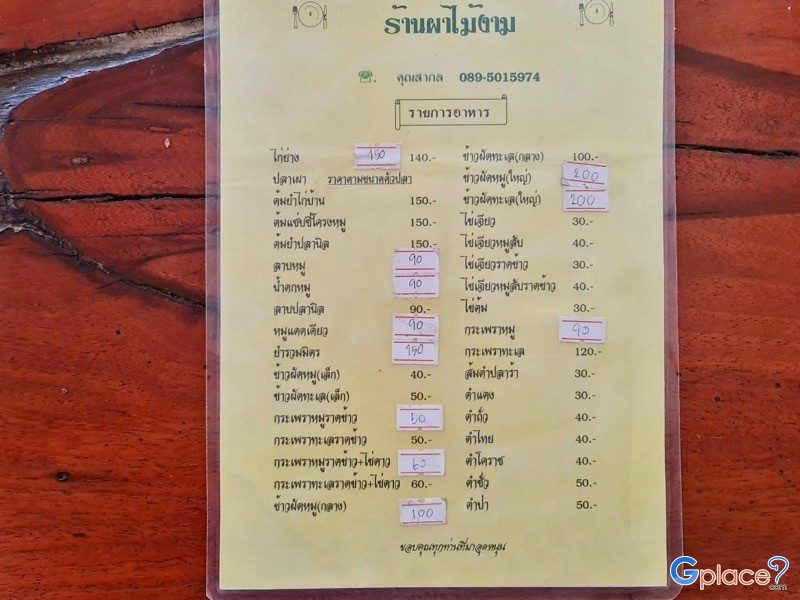 ร้านผาไม้งาม
☎. คุณสากล 089-5015974
รายการอาหาร
ไก่ย่าง 150 140.-
ปลาเผา ราคาตามขนาดตัวปลา
ต้มยำไก่บ้าน 150.-
ต้มแซ่บซี่โครงหมู 150.-
ต้มยำปลานิล 150.-
ลาบหมู 90
น้ำตกหมู 90
ลาบปลานิล 90.-
หมูแดดเดียว 90
ยำรวมมิตร 150
ข้าวผัดหมู(เล็ก) 40.-
ข้าวผัดทะเล(เล็ก) 50.-
กระเพราหมูราดข้าว 50
กระเพราทะเลราดข้าว 50.-
กระเพราหมูราดข้าว+ไข่ดาว 60
กระเพราทะเลราดข้าว+ไข่ดาว 60.-
ข้าวผัดหมู(กลาง) 100
ข้าวผัดทะเล(กลาง) 100.-
ข้าวผัดหมู(ใหญ่) 200
ข้าวผัดทะเล(ใหญ่) 200
ไข่เจียว 30.-
ไข่เจียวหมูสับ 40.-
ไข่เจียวราดข้าว 30.-
ไข่เจียวหมูสับราดข้าว 40.-
ไข่ต้ม 30.-
กระเพราหมู 90
กระเพราทะเล 120.-
ส้มตำปลาร้า 30.-
ตำแตง 30.-
ตำถั่ว 40.-
ตำไทย 40.-
ตำโคราช 40.-
ตำซั่ว 50.-
ตำป่า 50.-
ขอบคุณทุกท่านที่มาอุดหนุน
Gplace?.com